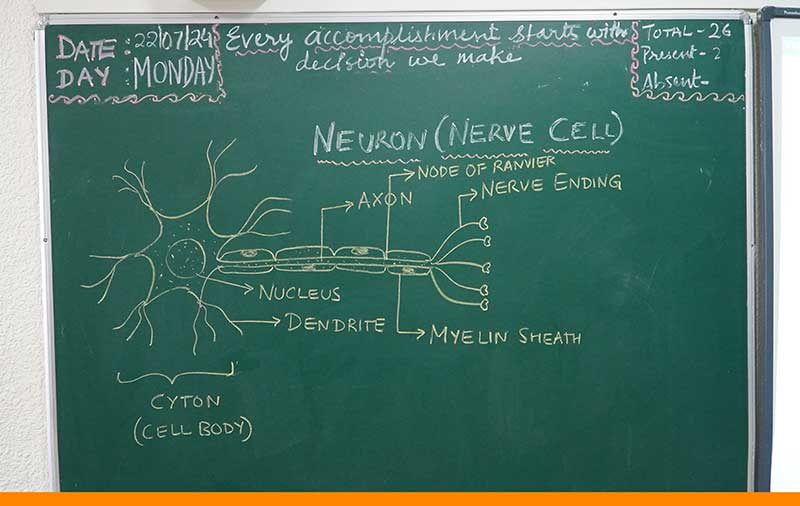 DATE : 22/07/24
DAY : MONDAY
Every accomplishment starts with
decision we make
TOTAL - 26
Present - 2
Absent -
NEURON (NERVE CELL)
NODE OF RANVIER
NERVE ENDING
AXON
NUCLEUS
DENDRITE
MYELIN SHEATH
CYTON
(CELL BODY)